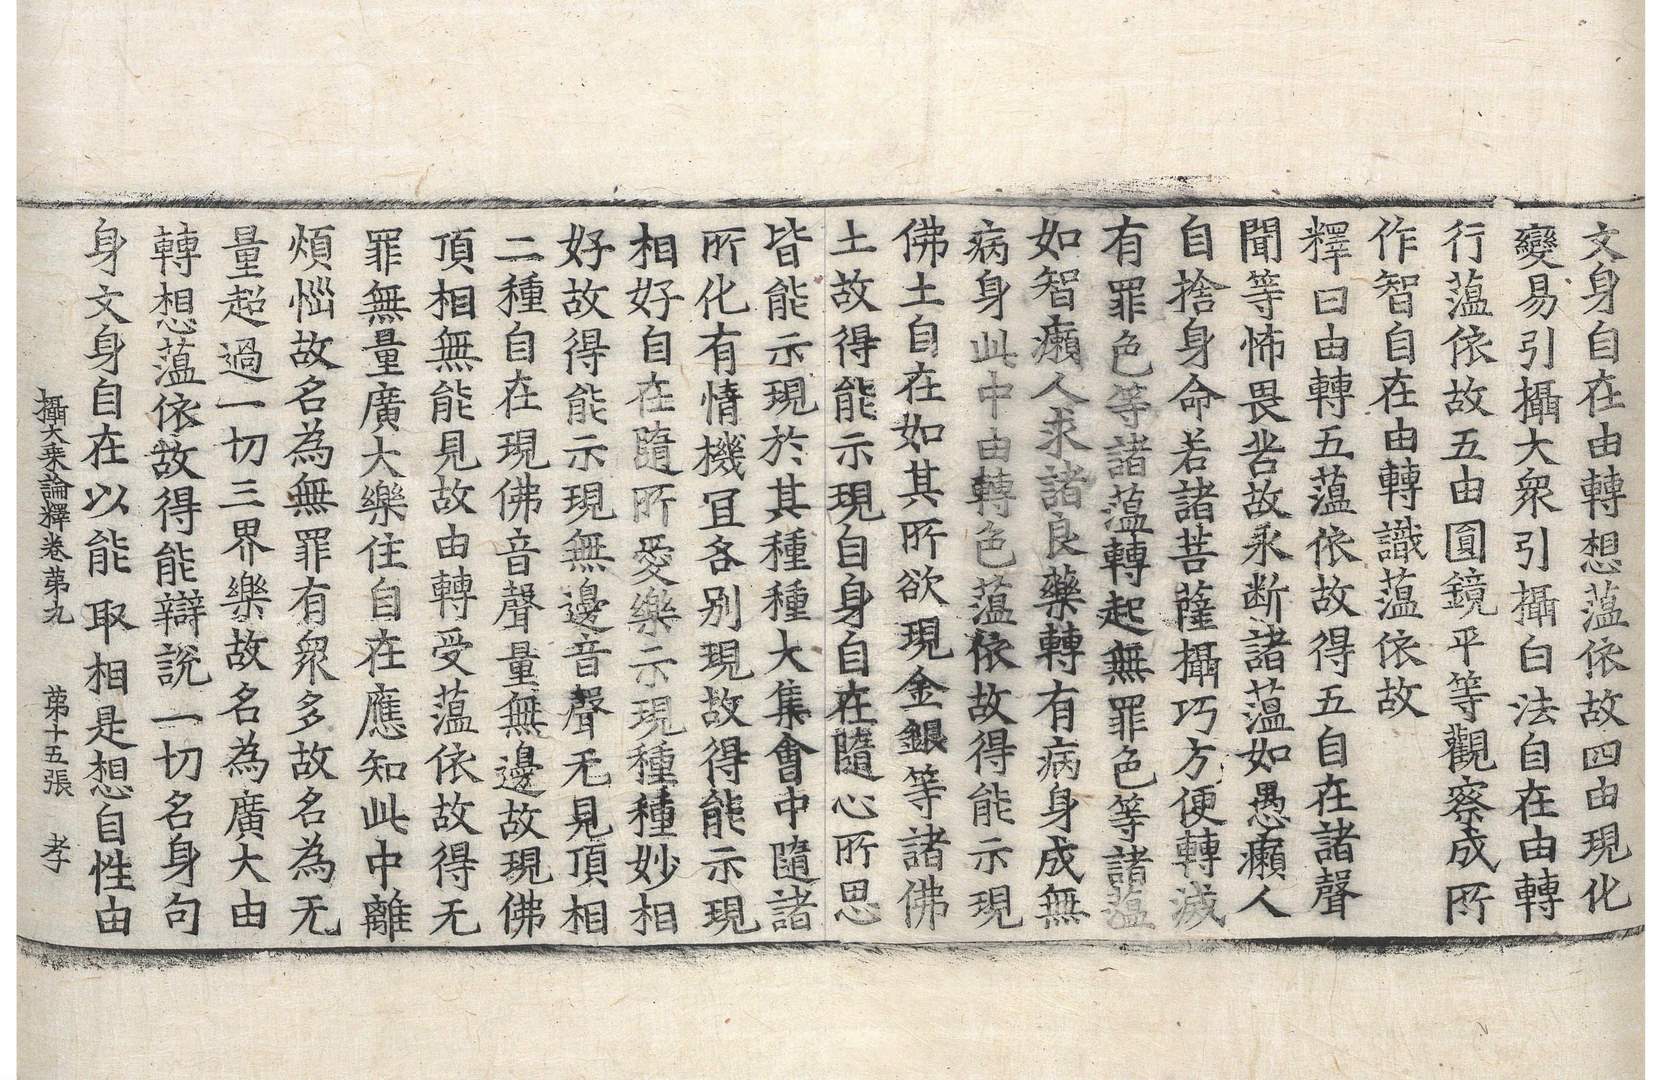 文身自在由轉想薀依故四由現化
變易引攝大衆引攝白法自在由轉
行薀依故五由圓鏡平等觀察成所
作智自在由轉識薀依故
釋曰由轉五薀依故得五自在諸聲
聞等怖畏苦故永断諸薀如愚癩人
自捨身命若諸菩薩攝巧方便轉滅
有罪色等諸薀轉起無罪色等諸薀
如智癩人求諸良藥轉有病身成無
病身此中由轉色薀依故得能示現
佛土自在如其所欲現金銀等諸佛
土故得能示現自身自在隨心所思
皆能示現於其種種大集會中隨諸
所化有情機冝各别現故得能示現
相好自在隨所愛樂示現種種妙相
好故得能示現無邊音聲无見頂相
二種自在現佛音聲量無邊故現佛
頂相無能見故由轉受薀依故得无
罪無量廣大樂住自在應知此中離
煩惱故名為無罪有衆多故名為无
量超過一切三界樂故名為廣大由
轉想薀依故得能辯説一切名身句
身文身自在以能取相是想自性由
攝大乗論釋卷苐九 苐十五張 孝